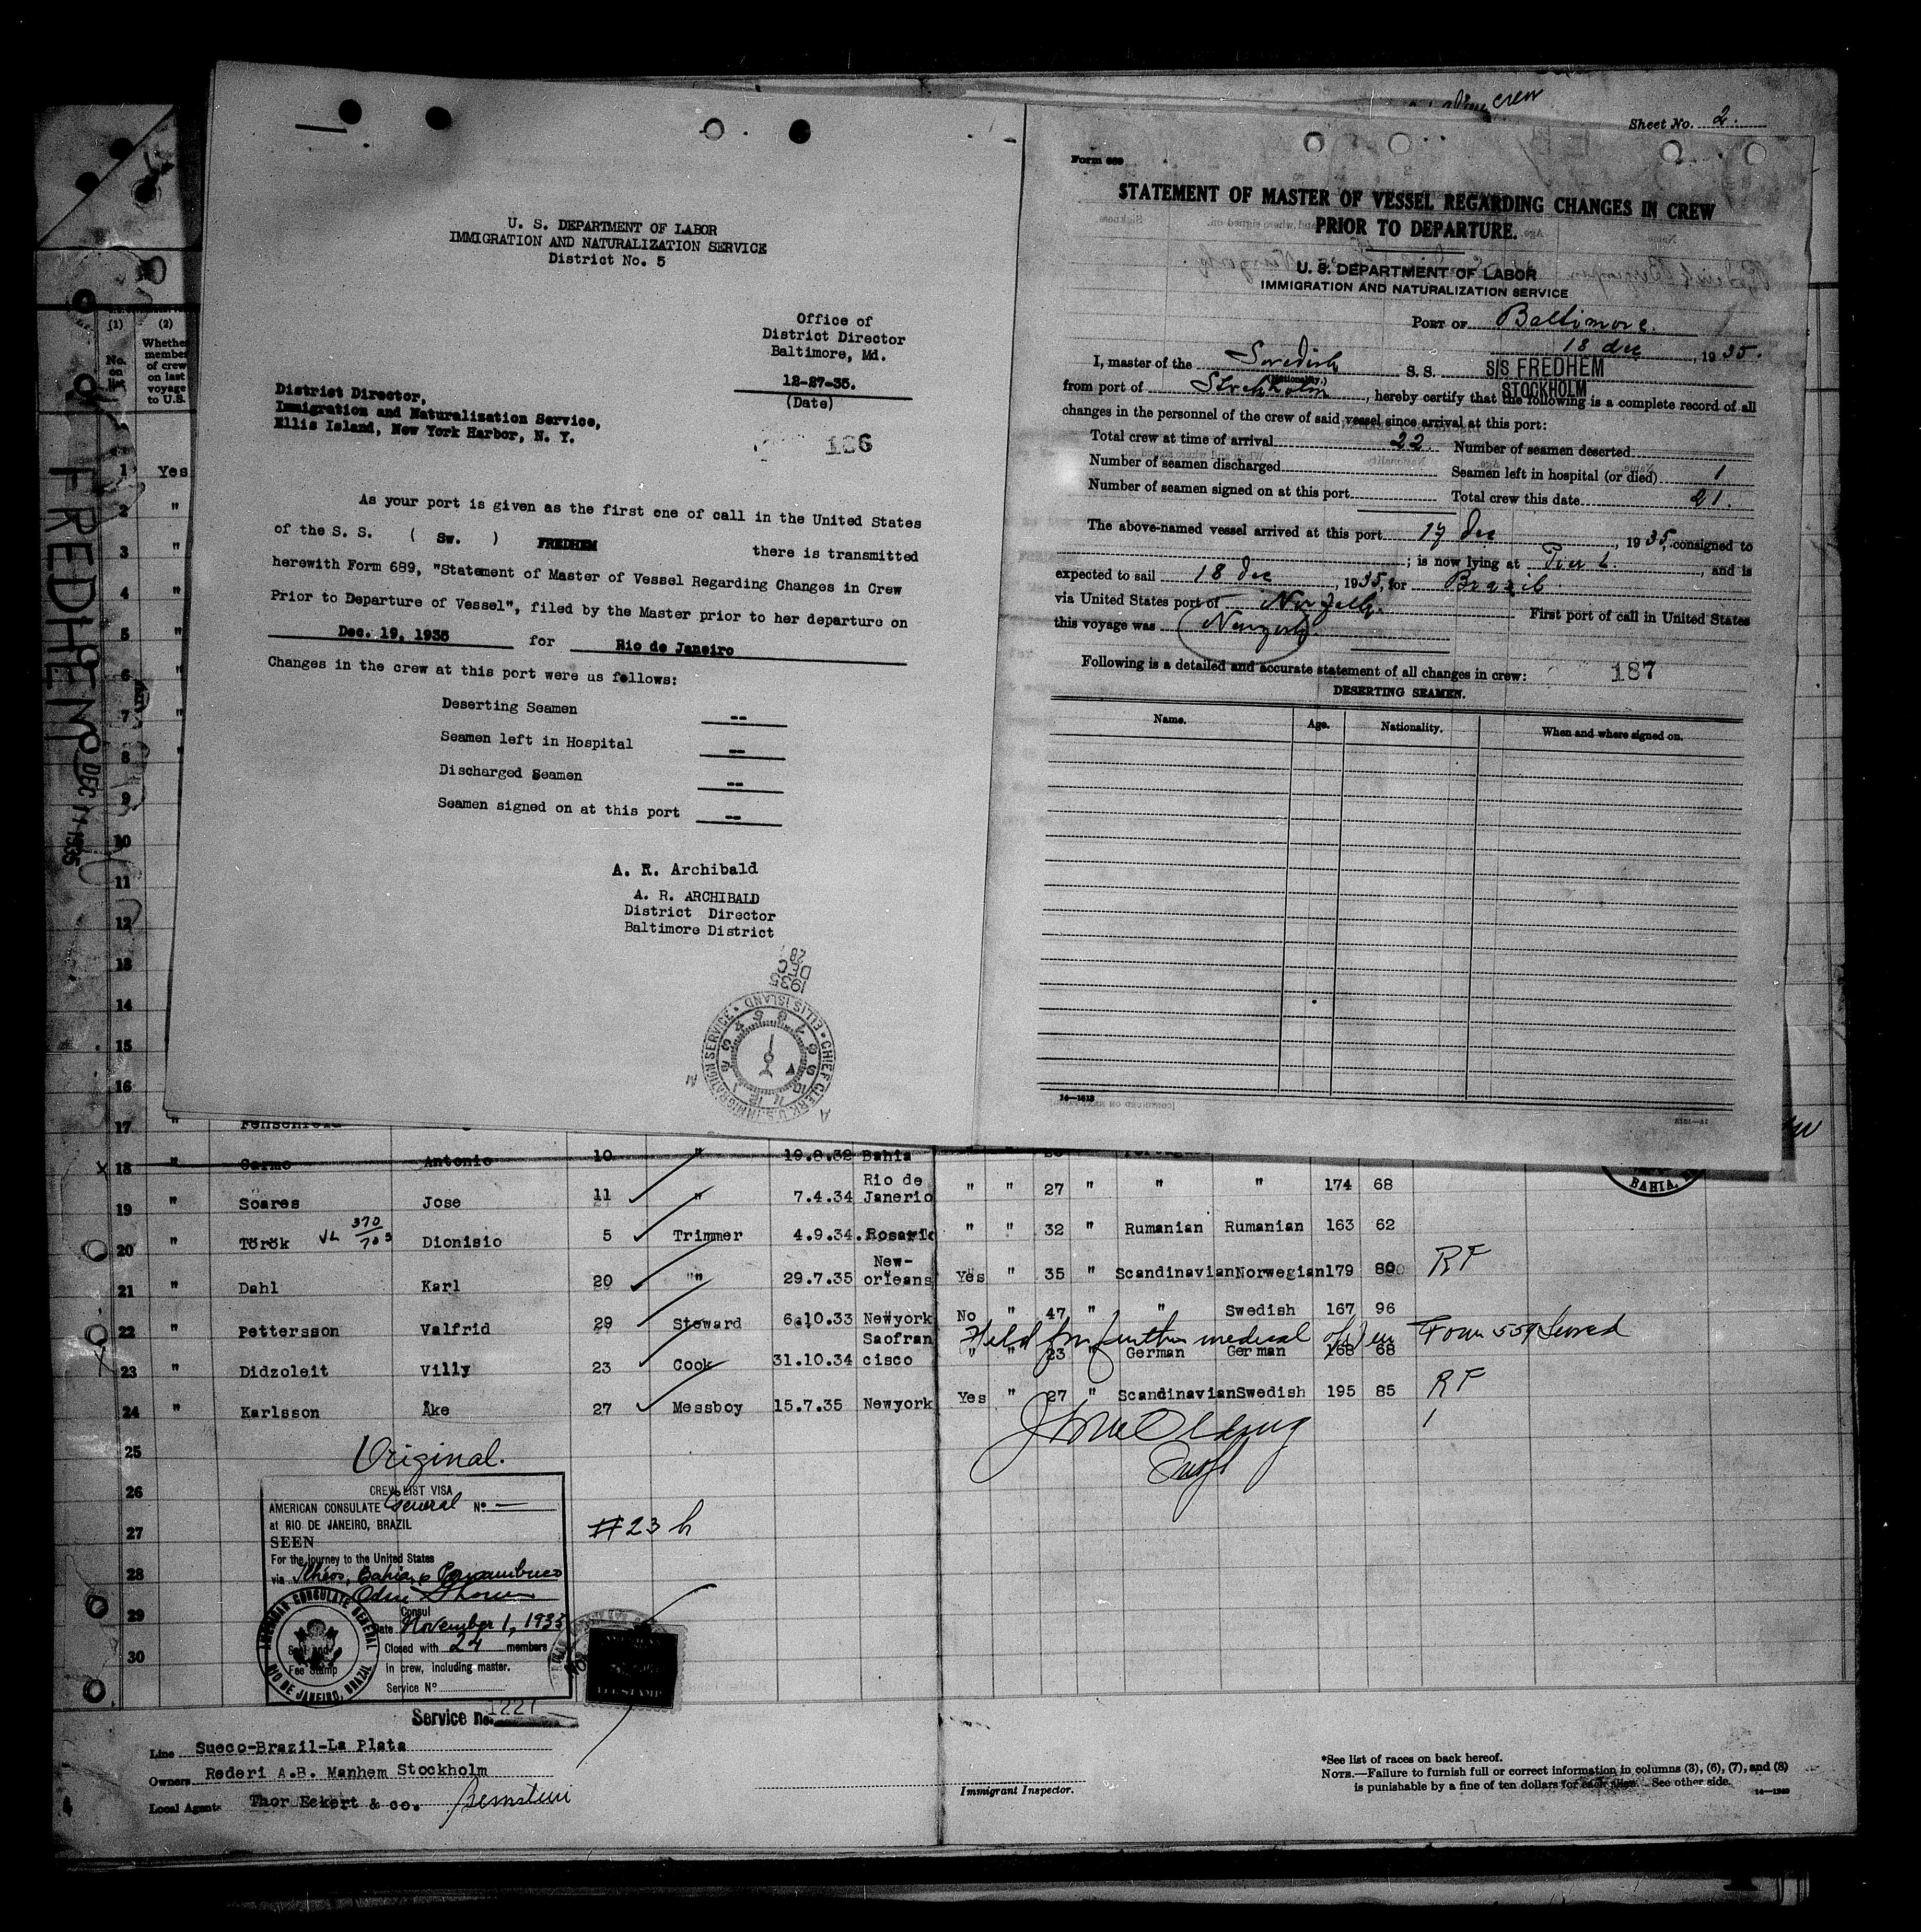 crew
Sheet No. 2.
U. S. DEPARTMENT OF LABOR
IMMIGRATION AND NATURALIZATION SERVICE
District No. 5
Office of
District Director
Baltimore, Md.
12-27-35.
(Date)
District Director,
Immigration and Naturalization Service,
Ellis Island, New York Harbor, N. Y.
186
As your port is given as the first one of call in the United States
of the S. S. ( Sw. ) FREDHEM there is transmitted
herewith Form 689, "Statement of Master of Vessel Regarding Changes in Crew
Prior to Departure of Vessel", filed by the Master prior to her departure on
Dec. 19, 1935 for Rio de Janeiro
Changes in the crew at this port were us follows:
Deserting Seamen --
Seamen left in Hospital --
Discharged Seamen --
Seamen signed on at this port --
A. R. Archibald
A. R. ARCHIBALD
District Director
Baltimore District
1935
DEC
28
CHIEF CLERK U.S. IMMIGRATION SERVICE • ELLIS ISLAND •
Form 689
STATEMENT OF MASTER OF VESSEL REGARDING CHANGES IN CREW
PRIOR TO DEPARTURE.
U. S. DEPARTMENT OF LABOR
IMMIGRATION AND NATURALIZATION SERVICE
PORT OF Baltimore.
18 dec, 1935.
I, master of the Swedish S. S. S/S FREDHEM
(Nationality.) STOCKHOLM
from port of Stockholm, hereby certify that the following is a complete record of all
changes in the personnel of the crew of said vessel since arrival at this port:
Total crew at time of arrival 22. Number of seamen deserted
Number of seamen discharged Seamen left in hospital (or died) 1
Number of seamen signed on at this port Total crew this date 21.
The above-named vessel arrived at this port 17 dec, 1935, consigned to
; is now lying at Pier 6., and is
expected to sail 18 dec, 1935, for Brazil
via United States port of First port of call in United States
this voyage was Newyork.
Following is a detailed and accurate statement of all changes in crew: 187
DESERTING SEAMEN.
Name. Age. Nationality. When and where signed on.
14—1618
FREDHEM DEC 11 1935
(1) (2)
No. on list
Whether member of crew on last voyage to U.S.
1 Yes
2 "
3 "
4 "
5 "
6 "
7 "
8 "
9
10
11
12
13
14
15
16
17 "
18 " Carmo Antonio 10 " 19.8.32 Bahia
BAHIA,
19 " Soares Jose 11 " 7.4.34 Rio de Janerio " " 27 " " " 174 68
20 " Török 370/705 Dionisio 5 Trimmer 4.9.34. Rosario " " 32 " Rumanian Rumanian 163 62
21 " Dahl Karl 20 "" 29.7.35 New-orleans Yes " 35 " Scandinavian Norwegian 179 80 RF
22 " Pettersson Valfrid 29 Steward 6.10.33 Newyork No " 47 " " Swedish 167 96
Held for further medical Form 559 served
23 " Didzoleit Villy 23 Cook 31.10.34 Saofrancisco " " 23 " German German 168 68
24 " Karlsson Åke 27 Messboy 15.7.35 Newyork Yes " 27 " Scandinavian Swedish 195 85 RF
25
26
27
28
29
30
Original.
CREW LIST VISA
AMERICAN CONSULATE General No —
at RIO DE JANEIRO, BRAZIL
SEEN
For the journey to the United States
via Ilhéos, Bahia & Pernambuco
Consul
Date November 1, 1935
Closed with 24 members
in crew, including master.
Service No
AMERICAN CONSULATE GENERAL
RIO DE JANEIRO, BRAZIL
Seal and
Fee Stamp
# 23 h
Service no. 1221
Line Sueco-Brazil-La Plata
Owners Rederi A.B. Manhem Stockholm
Local Agents Thor Eckert & co. Bernstein
Immigrant Inspector.
*See list of races on back hereof.
NOTE.—Failure to furnish full or correct information in columns (3), (6), (7), and (8)
is punishable by a fine of ten dollars for each alien. See other side.
14—1240